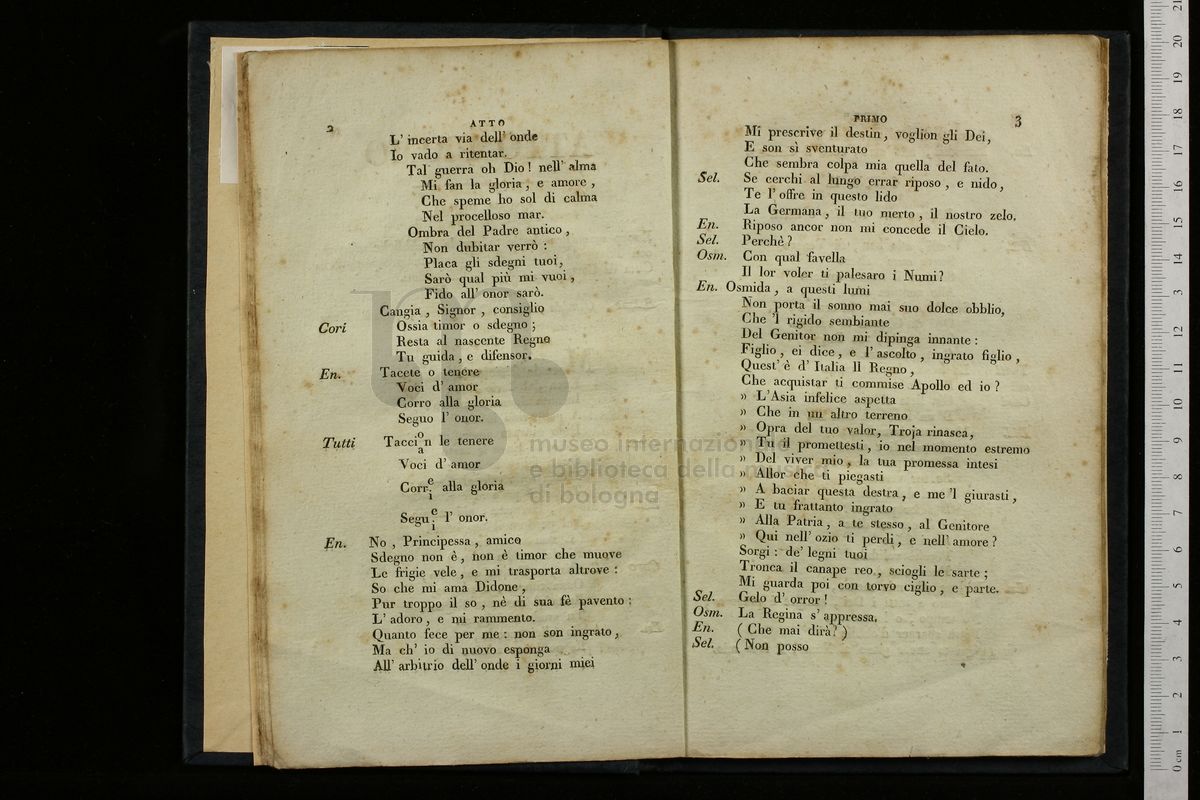 2
ATTO
L' incerta via dell' onde
Io vado a ritentar.
Tal guerra oh Dio! nell' alma
Mi fan la gloria, e amore,
Che speme ho sol di calma
Nel procelloso mar.
Ombra del Padre antico,
Non dubitar verrò:
Placa gli sdegni tuoi,
Sarò qual più mi vuoi,
Fido all' onor sarò.
Cangia, Signor, consiglio
Cori Ossia timor o sdegno;
Resta al nascente Regno
Tu guida, e difensor.
En. Tacete o tenere
Voci d' amor
Corro alla gloria
Seguo l' onor.
Tutti Tacci o/a n le tenere
Voci d' amor
Corr e/i alla gloria
Segu e/i l' onor.
En. No, Principessa, amico
Sdegno non è, non è timor che muove
Le frigie vele, e mi trasporta altrove:
So che mi ama Didone,
Pur troppo il so, nè di sua fè pavento:
L' adoro, e mi rammento.
Quanto fece per me: non son ingrato,
Ma ch' io di nuovo esponga
All' arbitrio dell' onde i giorni miei
PRIMO
3
Mi prescrive il destin, voglion gli Dei,
E son sì sventurato
Che sembra colpa mia quella del fato.
Sel. Se cerchi al lungo errar riposo, e nido,
Te l' offre in questo lido
La Germana, il tuo merto, il nostro zelo.
En. Riposo ancor non mi concede il Cielo.
Sel. Perchè?
Osm. Con qual favella
Il lor voler ti palesaro i Numi?
En. Osmida, a questi lumi
Non porta il sonno mai suo dolce obblio,
Che 'l rigido sembiante
Del Genitor non mi dipinga innante:
Figlio, ei dice, e l' ascolto, ingrato figlio,
Quest' è d' Italia Il Regno,
Che acquistar ti commise Apollo ed io?
» L'Asia infelice aspetta
» Che in un altro terreno
» Opra del tuo valor, Troja rinasca,
» Tu il promettesti, io nel momento estremo
» Del viver mio, la tua promessa intesi
» Allor che ti piegasti
» A baciar questa destra, e me 'l giurasti,
» E tu frattanto ingrato
» Alla Patria, a te stesso, al Genitore
» Qui nell' ozio ti perdi, e nell' amore?
Sorgi: de' legni tuoi
Tronca il canape reo, sciogli le sarte;
Mi guarda poi con torvo ciglio, e parte.
Sel. Gelo d' orror!
Osm. La Regina s' appressa.
En. (Che mai dirà?)
Sel. (Non posso
museo internazionale
e biblioteca della musica
di bologna
0 cm 1 2 3 4 5 6 7 8 9 10 11 12 13 14 15 16 17 18 19 20 21